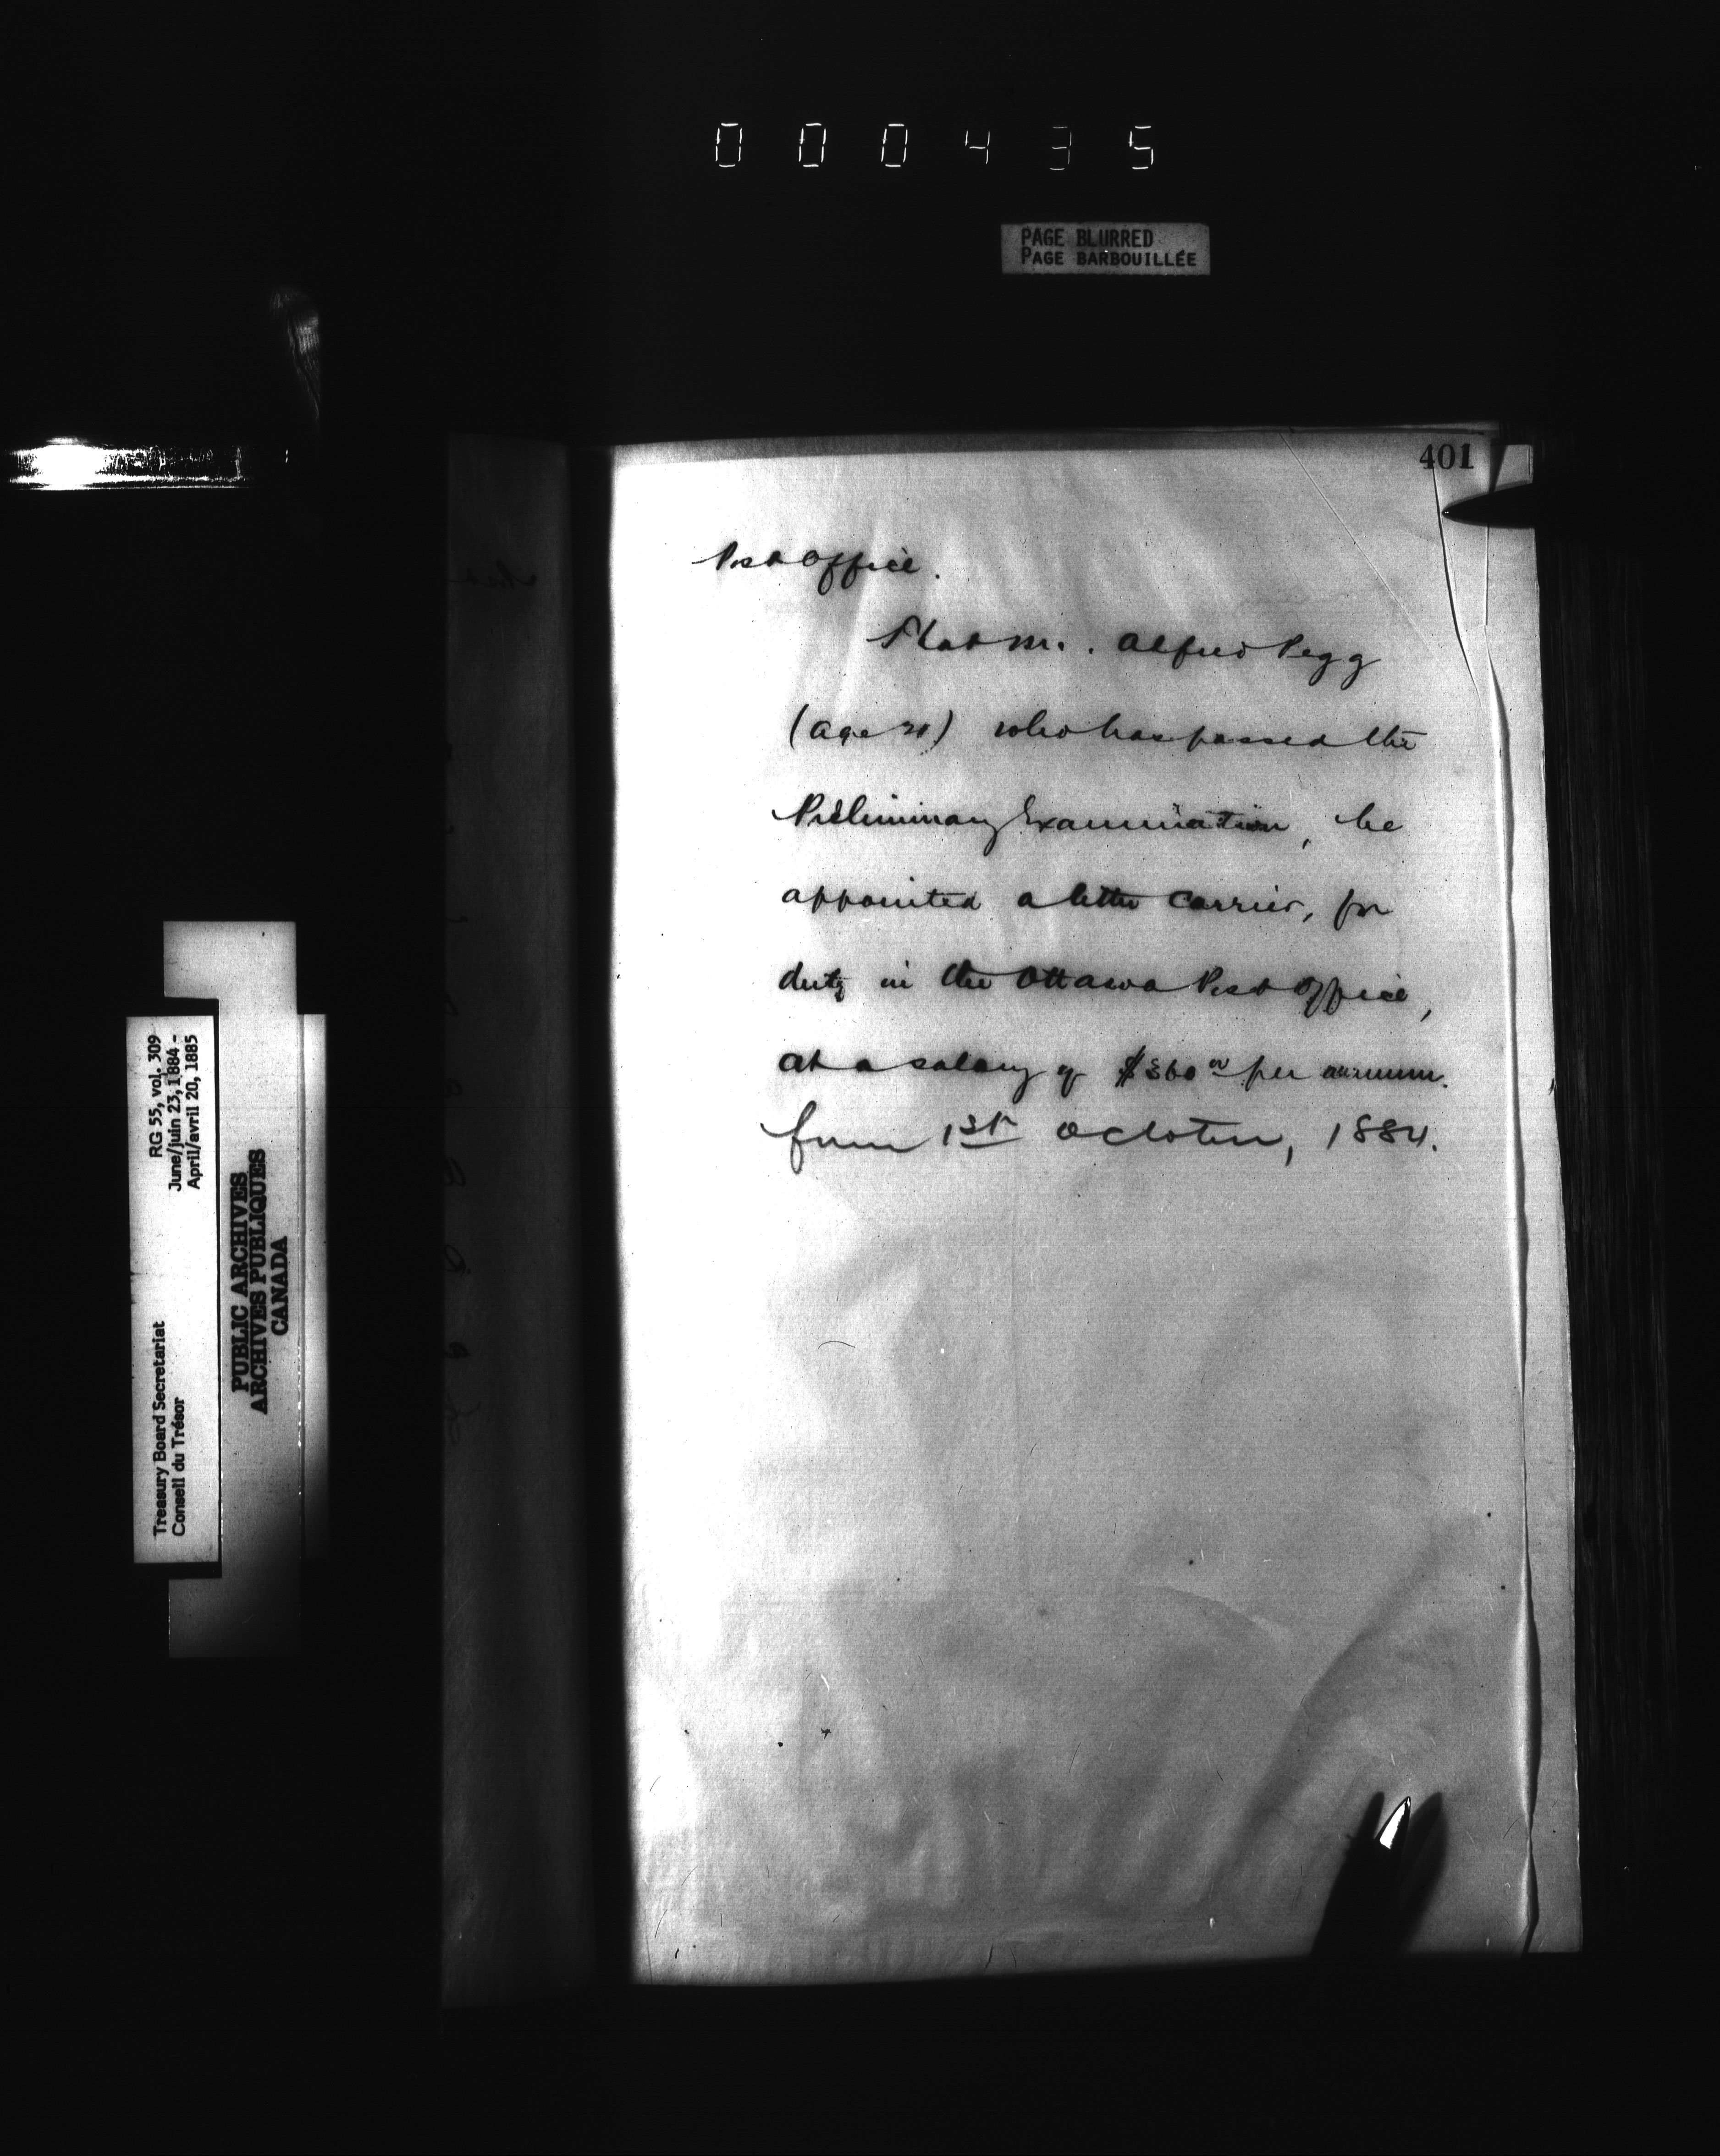 000435
PAGE BLURRED
PAGE BARBOUILLÉE
401
Post Office.
That Mr. Alfred Pegg
(age ) who has passed the
Preliminary Examination, be
appointed a letter carrier, for
duty in the Ottawa Post Office,
at a salary of $360 00 per annum.
from 1st October, 1884.
RG 55, vol. 309
June/juin 23, 1884 -
April/avril 20, 1885
Treasury Board Secretariat
Conseil du Trésor
PUBLIC ARCHIVES
ARCHIVES PUBLIQUES
CANADA